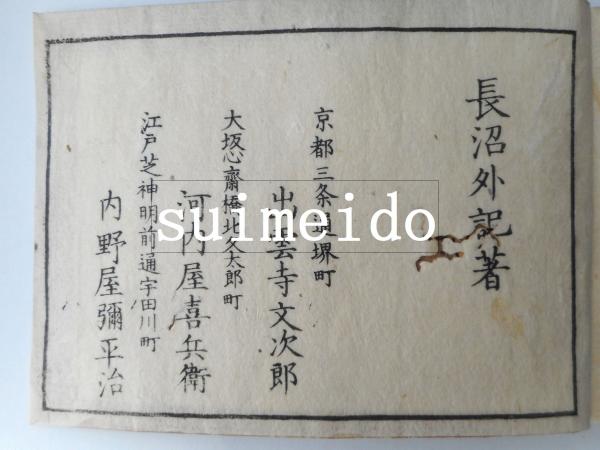 長沼外記著
京都三条通堺町
出雲寺文次郎
大坂心齋橋北久太郎町
河内屋喜兵衛
江戸芝神明前通宇田川町
内野屋彌平治
suimeido